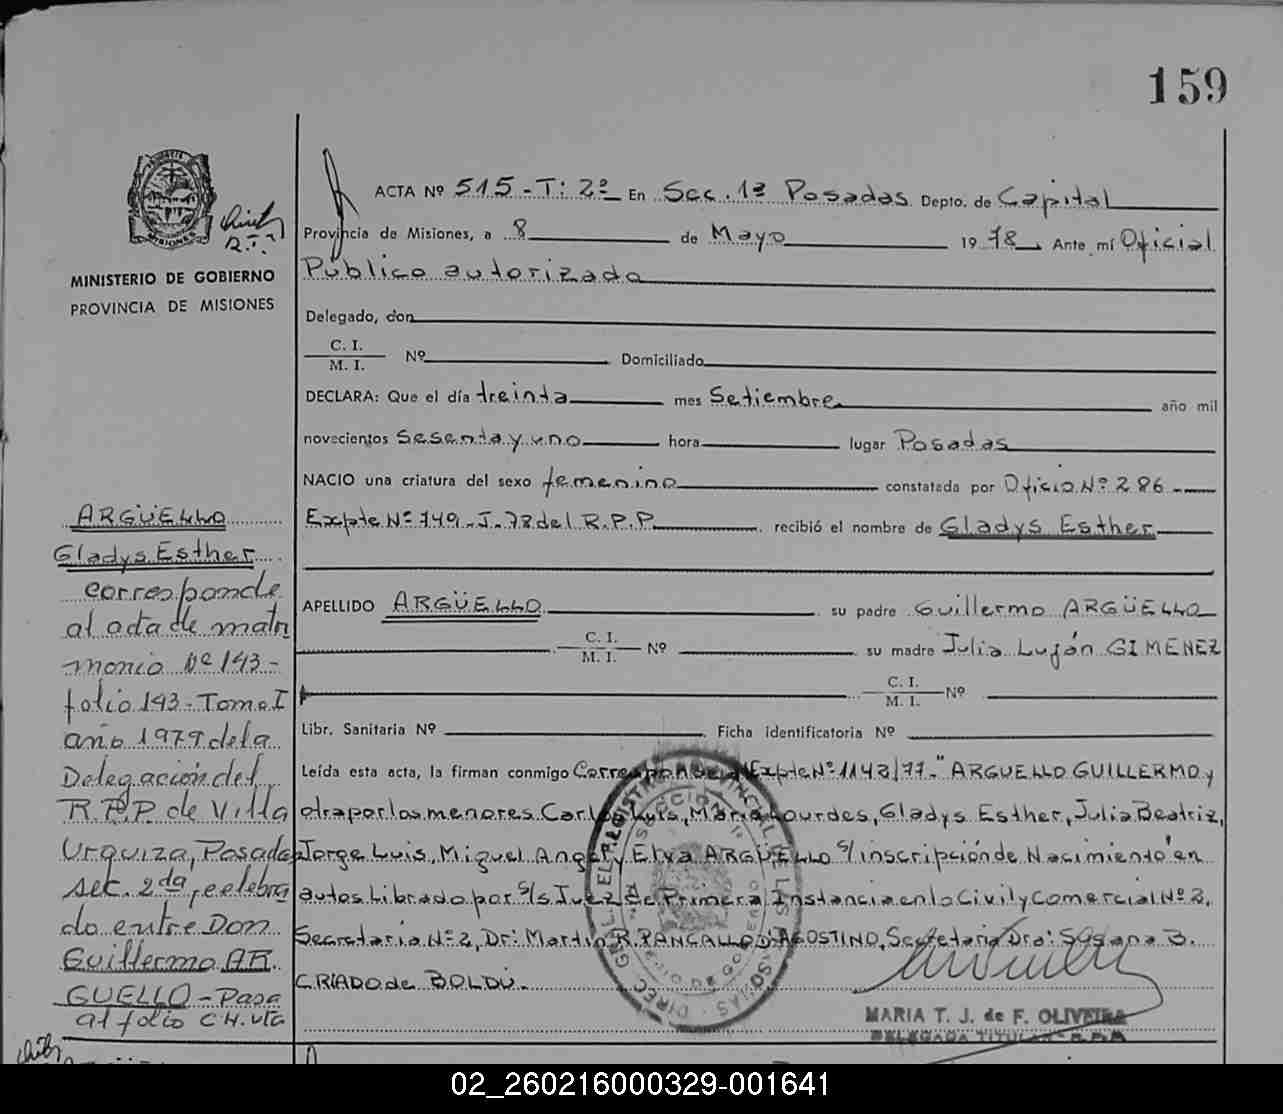 159
ACTA Nº 515 - T: 2º En Sec. 1ª Posadas Depto. de Capital
Provincia de Misiones, a 8 de Mayo 1978 Ante mí Oficial
Público autorizado
MINISTERIO DE GOBIERNO
PROVINCIA DE MISIONES
Delegado, don
C. I.
M. I. Nº Domiciliado
DECLARA: Que el día treinta mes Setiembre año mil
novecientos sesenta y uno hora lugar Posadas
NACIO una criatura del sexo femenino constatada por Oficio Nº 286
Expte Nº 749-J-78 del R.P.P. recibió el nombre de Gladys Esther
APELLIDO ARGÜELLO su padre Guillermo ARGÜELLO
C. I.
M. I. Nº su madre Julia Luján GIMENEZ
C. I.
M. I. Nº
Libr. Sanitaria Nº Ficha identificatoria Nº
Leída esta acta, la firman conmigo Corresponde al Expte Nº 1143/77-"ARGUELLO GUILLERMO y
otra por los menores Carlos Luis, María Lourdes, Gladys Esther, Julia Beatriz,
Jorge Luis, Miguel Angel y Elva ARGÜELLO s/inscripción de Nacimiento" en
autos Librado por S/S Juez de Primera Instancia en lo Civil y Comercial Nº 2,
Secretaría Nº 2, Dr: Martin R. PANCALLO D'AGOSTINO, Secretaria Dra: Susana B.
CRIADO de BOLDÚ.
MARIA T. J. de F. OLIVEIRA
DELEGADA TITULAR - R.P.P.
ARGÜELLO
Gladys Esther
corresponde
al acta de matri
monio Nº 143-
folio 143 - Tomo I
año 1979 de la
Delegación del
R.P.P. de Villa
Urquiza, Posadas
sec. 2da, celebra
do entre Don
Guillermo AR
GUELLO - Pasa
al folio CH. vta
02_260216000329-001641